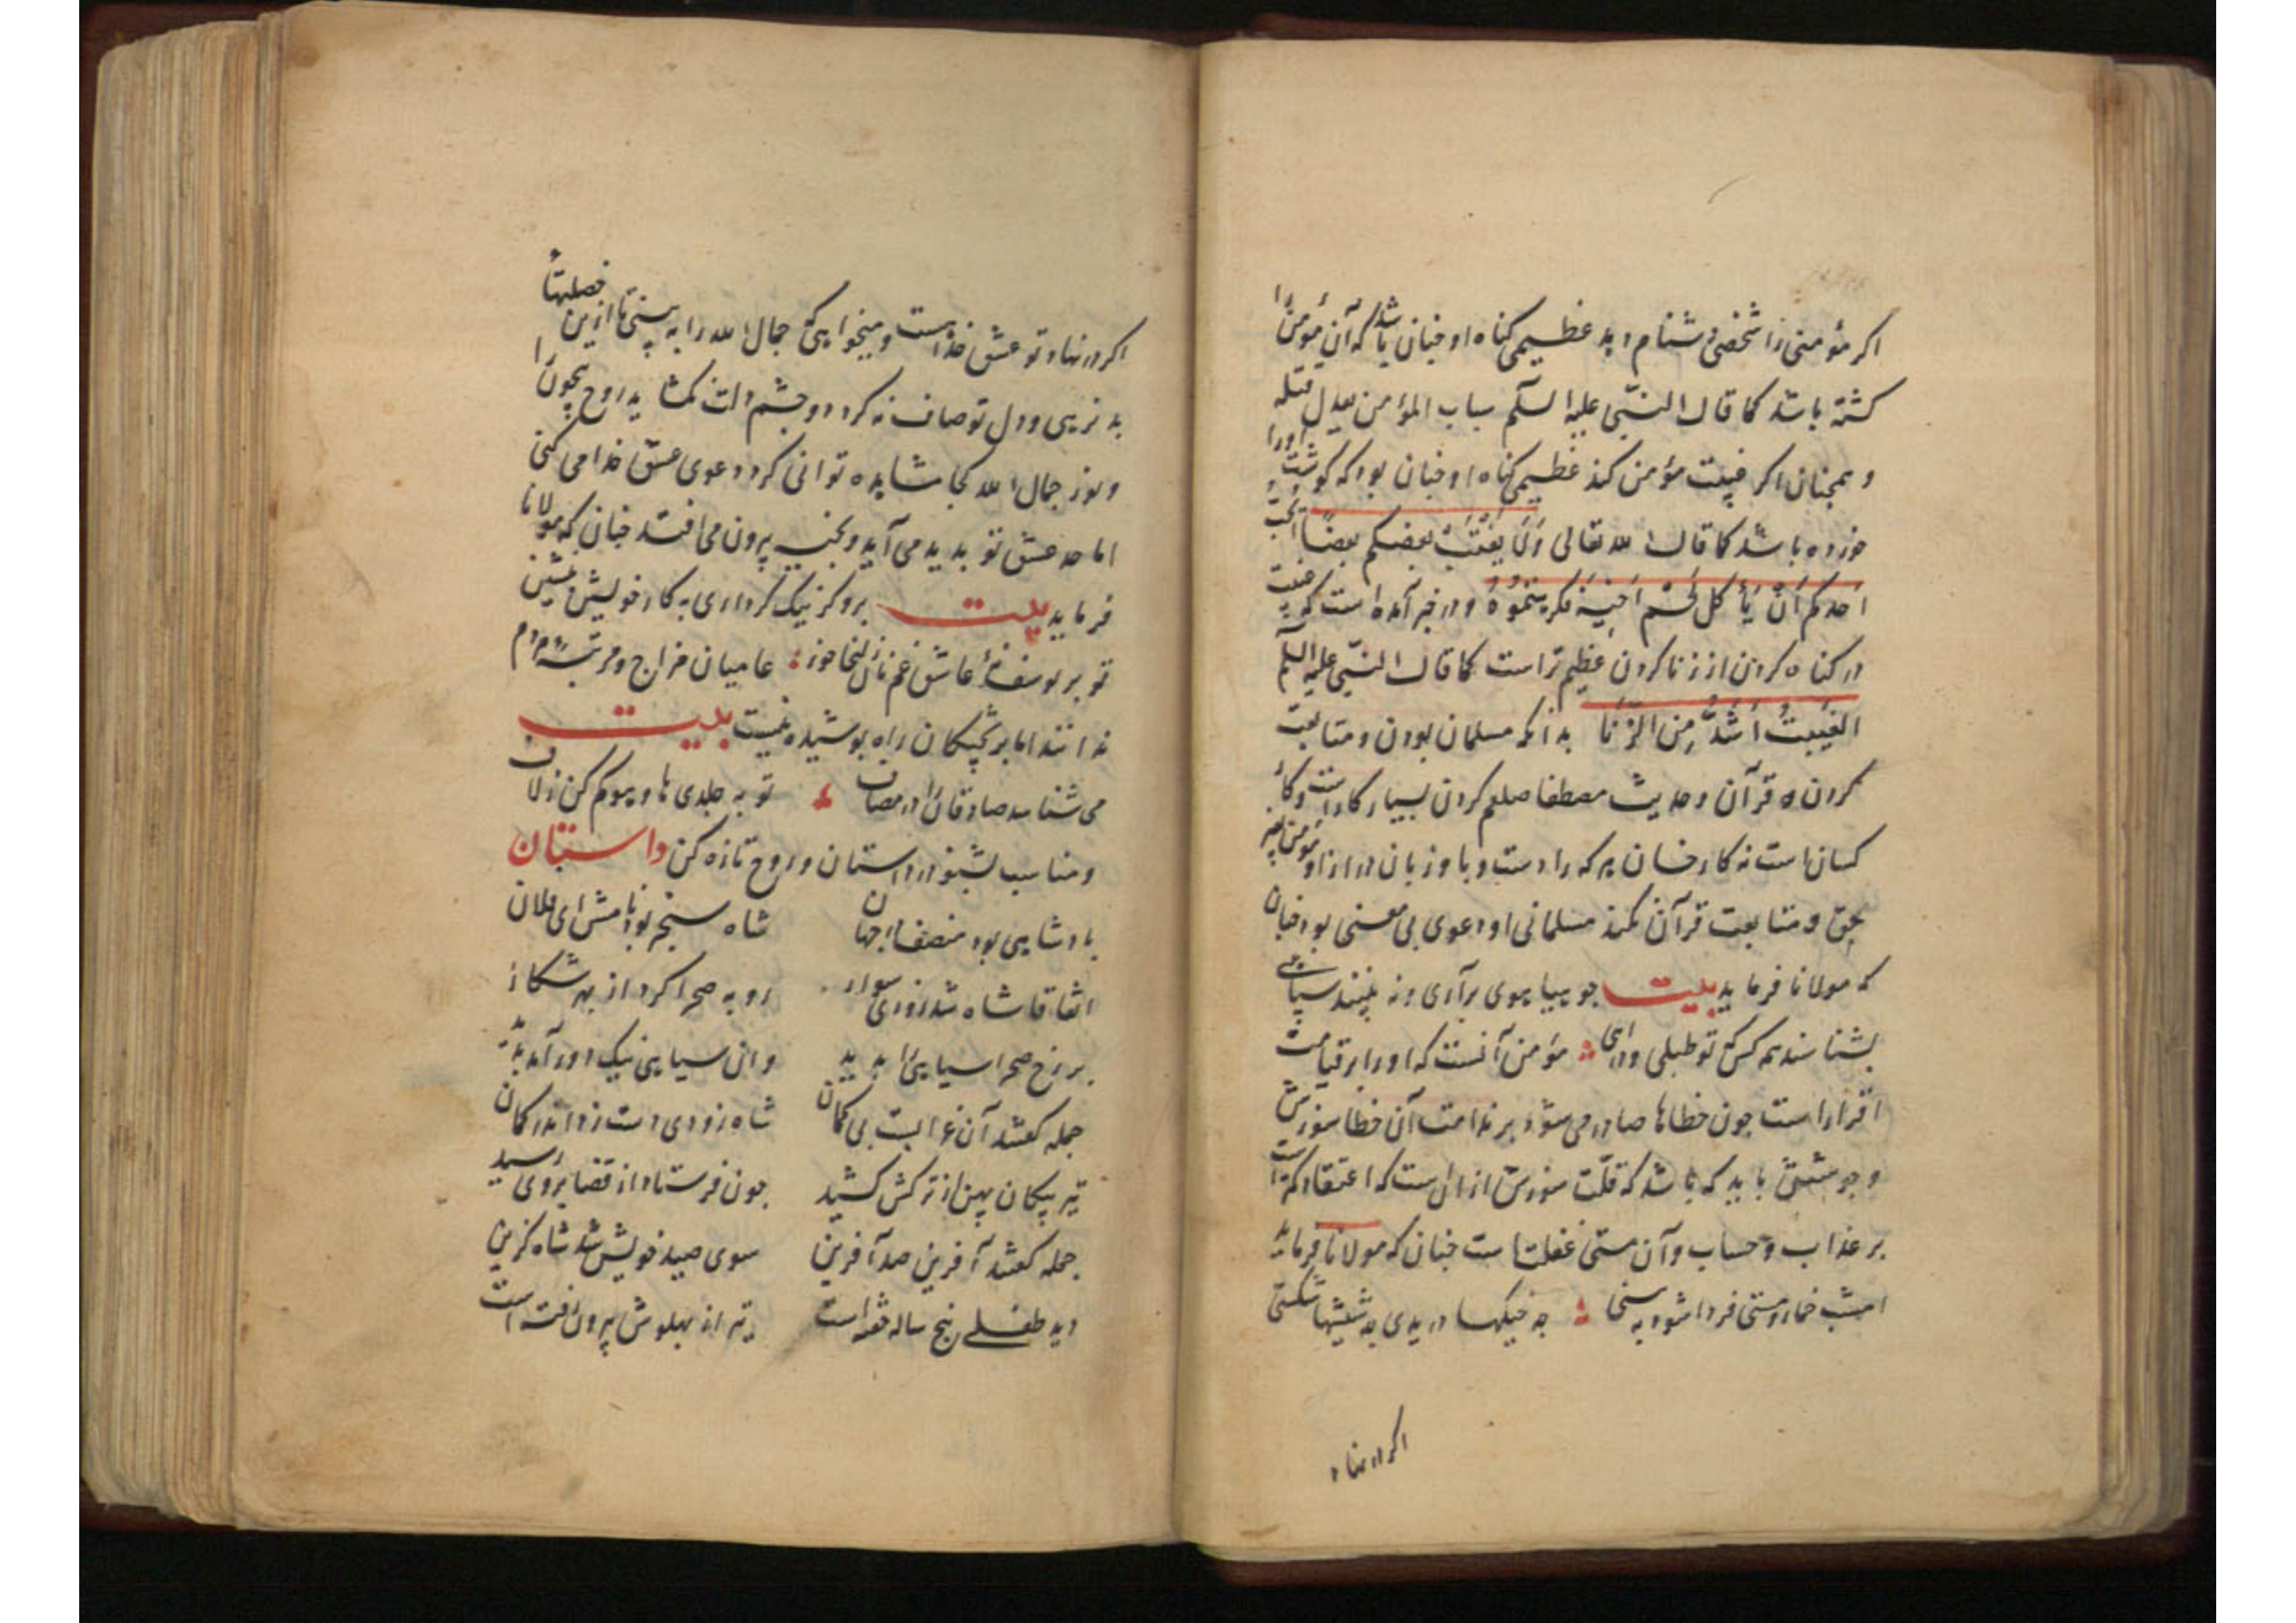 اگر مؤمنی را شخصی دشنام دهد عظیمی گناه او چنان باشد که آن مؤمن را
کشته باشد کما قال النبی علیه السلم سباب المؤمن یعدل قتله
و همچنان اگر غیبت مؤمن کند عظیمی گناه او چنان بود که گوشت او را
خورده باشد کما قال الله تعالی وَلَا یَغْتَبْ بعضکم بعضًا أیحب
اَحَدکم اَنْ یَأکل لَحْمَ اَخِیهِ فکرهتموه و در خبر آمده است که غیبت
در گناه کردن از زنا کردن عظیم تر است کما قال النبی علیه السلم
الغیبت اَشَدُّ مِن الزّنَا بدانکه مسلمان بودن و متابعت
کردن قرآن و حدیث مصطفا صلعم کردن بسیار کار است و کار
کسان است نه کار خسان هر که را دست و پا و زبان دراز
بحق و متابعت قرآن نکند مسلمانی او دعوی بی معنی بود چنان
که مولانا فرماید بیت جو بیا
بشناسند همه کس تو طبلی و مؤمن آنست که او را بر قیامت
اقرار است چون خطاها صادر می شود بر ندامت آن خطا سوزش
و باید که باشد که قلّت سوزش از آن است که اعتقاد کمتر است
بر عذاب و حساب و آن مستی غفلت است چنان که مولانا فرماید
امشب خمار و مستی فردا شود به چه خیکها دریدی چه شیشها شکستی
اگر در نهاد
اگر در نهاد تو عشق خداست و میخواهی که جمال الله را به بینی تا ازین خصلتها
بد نرهی و دل تو صاف نه گردد و چشم دلت نگشاید روح بیچون را
و نور جمال الله کجا مشاهده توانی کرد دعوی عشق خدا می کنی
اما حد عشق تو بدید می آید و بیرون می افتد چنان که مولانا
فرماید بیت برو گر نیک کرداری به کار خویش بنشین
تو بر یوسف نهٔ عاشق غم نان زلیخا خور عامیان مزاج و مرتبهٔ مردم
ندانند اما بر پختگان راه پوشیده نیست بیت
می شناسد صادقان را در مصاف تو به جلدی های و هوی کم کن ز لاف
و مناسب بشنو در داستان و روح تازه کن داستان
پادشاهی بود منصف در جهان شاه سنجر بود نامش ای فلان
اتفاقا شاه شد روزی سوار رو به صحرا کرد از بهر شکار
بر رخ صحرا سیاهی را بدید وان سیاهی نیک دور آمد پدید
جمله گفتند آن غزالست بی گمان شاه زودی دست زد اندر کمان
تیر پیکان پهن از ترکش کشید چون فرستاد از قضا بر وی رسید
جمله گفتند آفرین صد آفرین سوی صید خویش شد شاه گزین
دید طفلی پنج ساله خفته است تیر از پهلوش بیرون رفته است